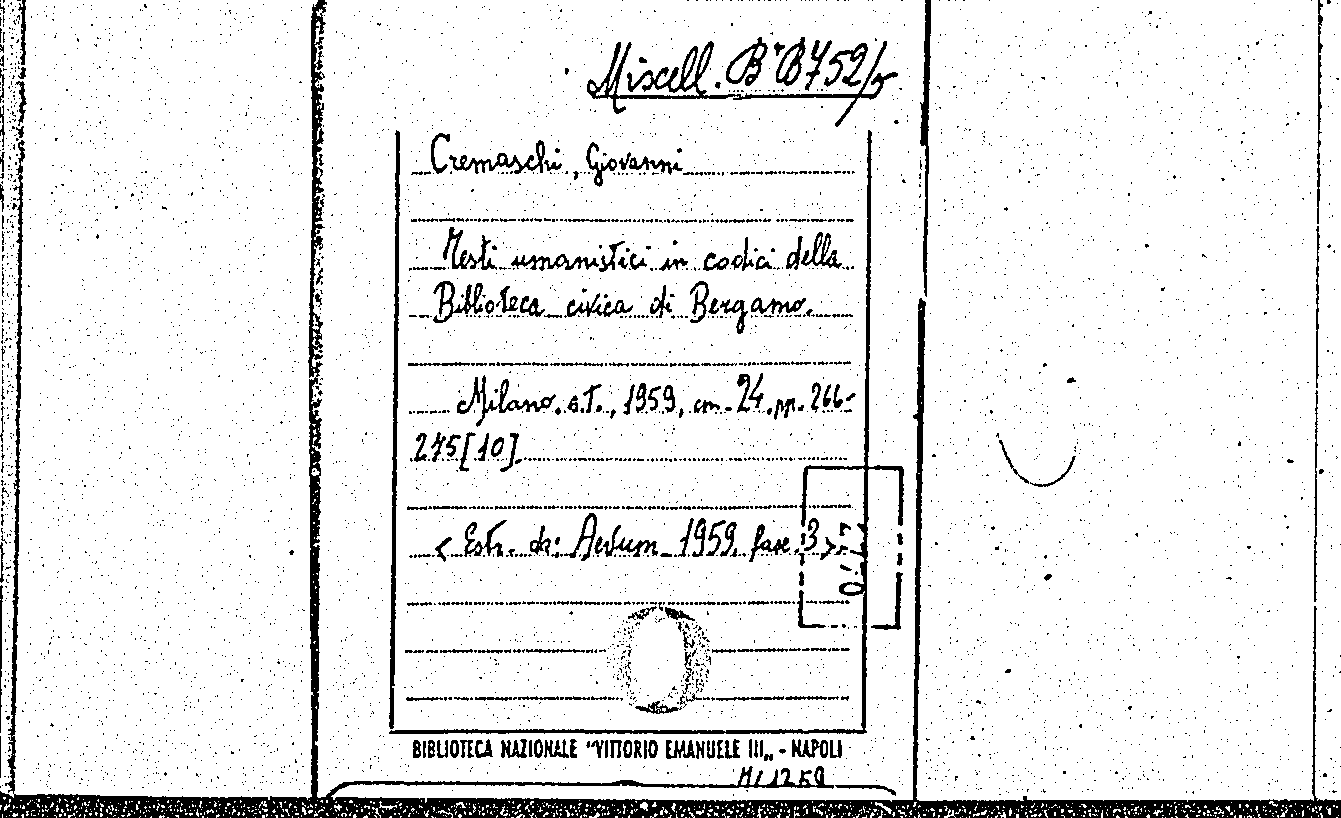 Miscell. B'B752/5
Cremaschi, Giovanni
Testi umanistici in codici della
Biblioteca civica di Bergamo.
Milano. s.T., 1959, cm. 24. pp. 266-
275[10].
< Estr. da: Aevum 1959. fasc. 3>
BIBLIOTECA NAZIONALE "VITTORIO EMANUELE III„ - NAPOLI